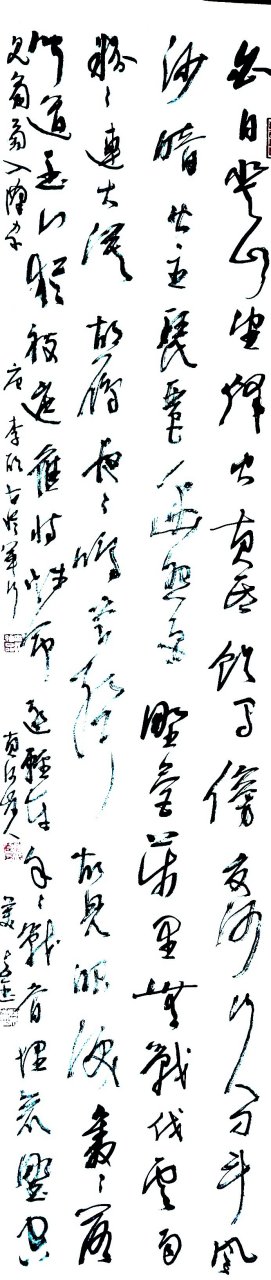 白日登山望烽火黃昏飲馬傍交河行人刁斗風
沙暗公主琵琶幽怨多野萬里無戰伐雨
紛〻連大漠胡雁夜〻鳴胡兒眼淚雙〻落
聞道玉門猶被遮應將性命逐輕車年〻戰骨埋荒外空
見蒲萄入漢家 唐李頎古從軍行